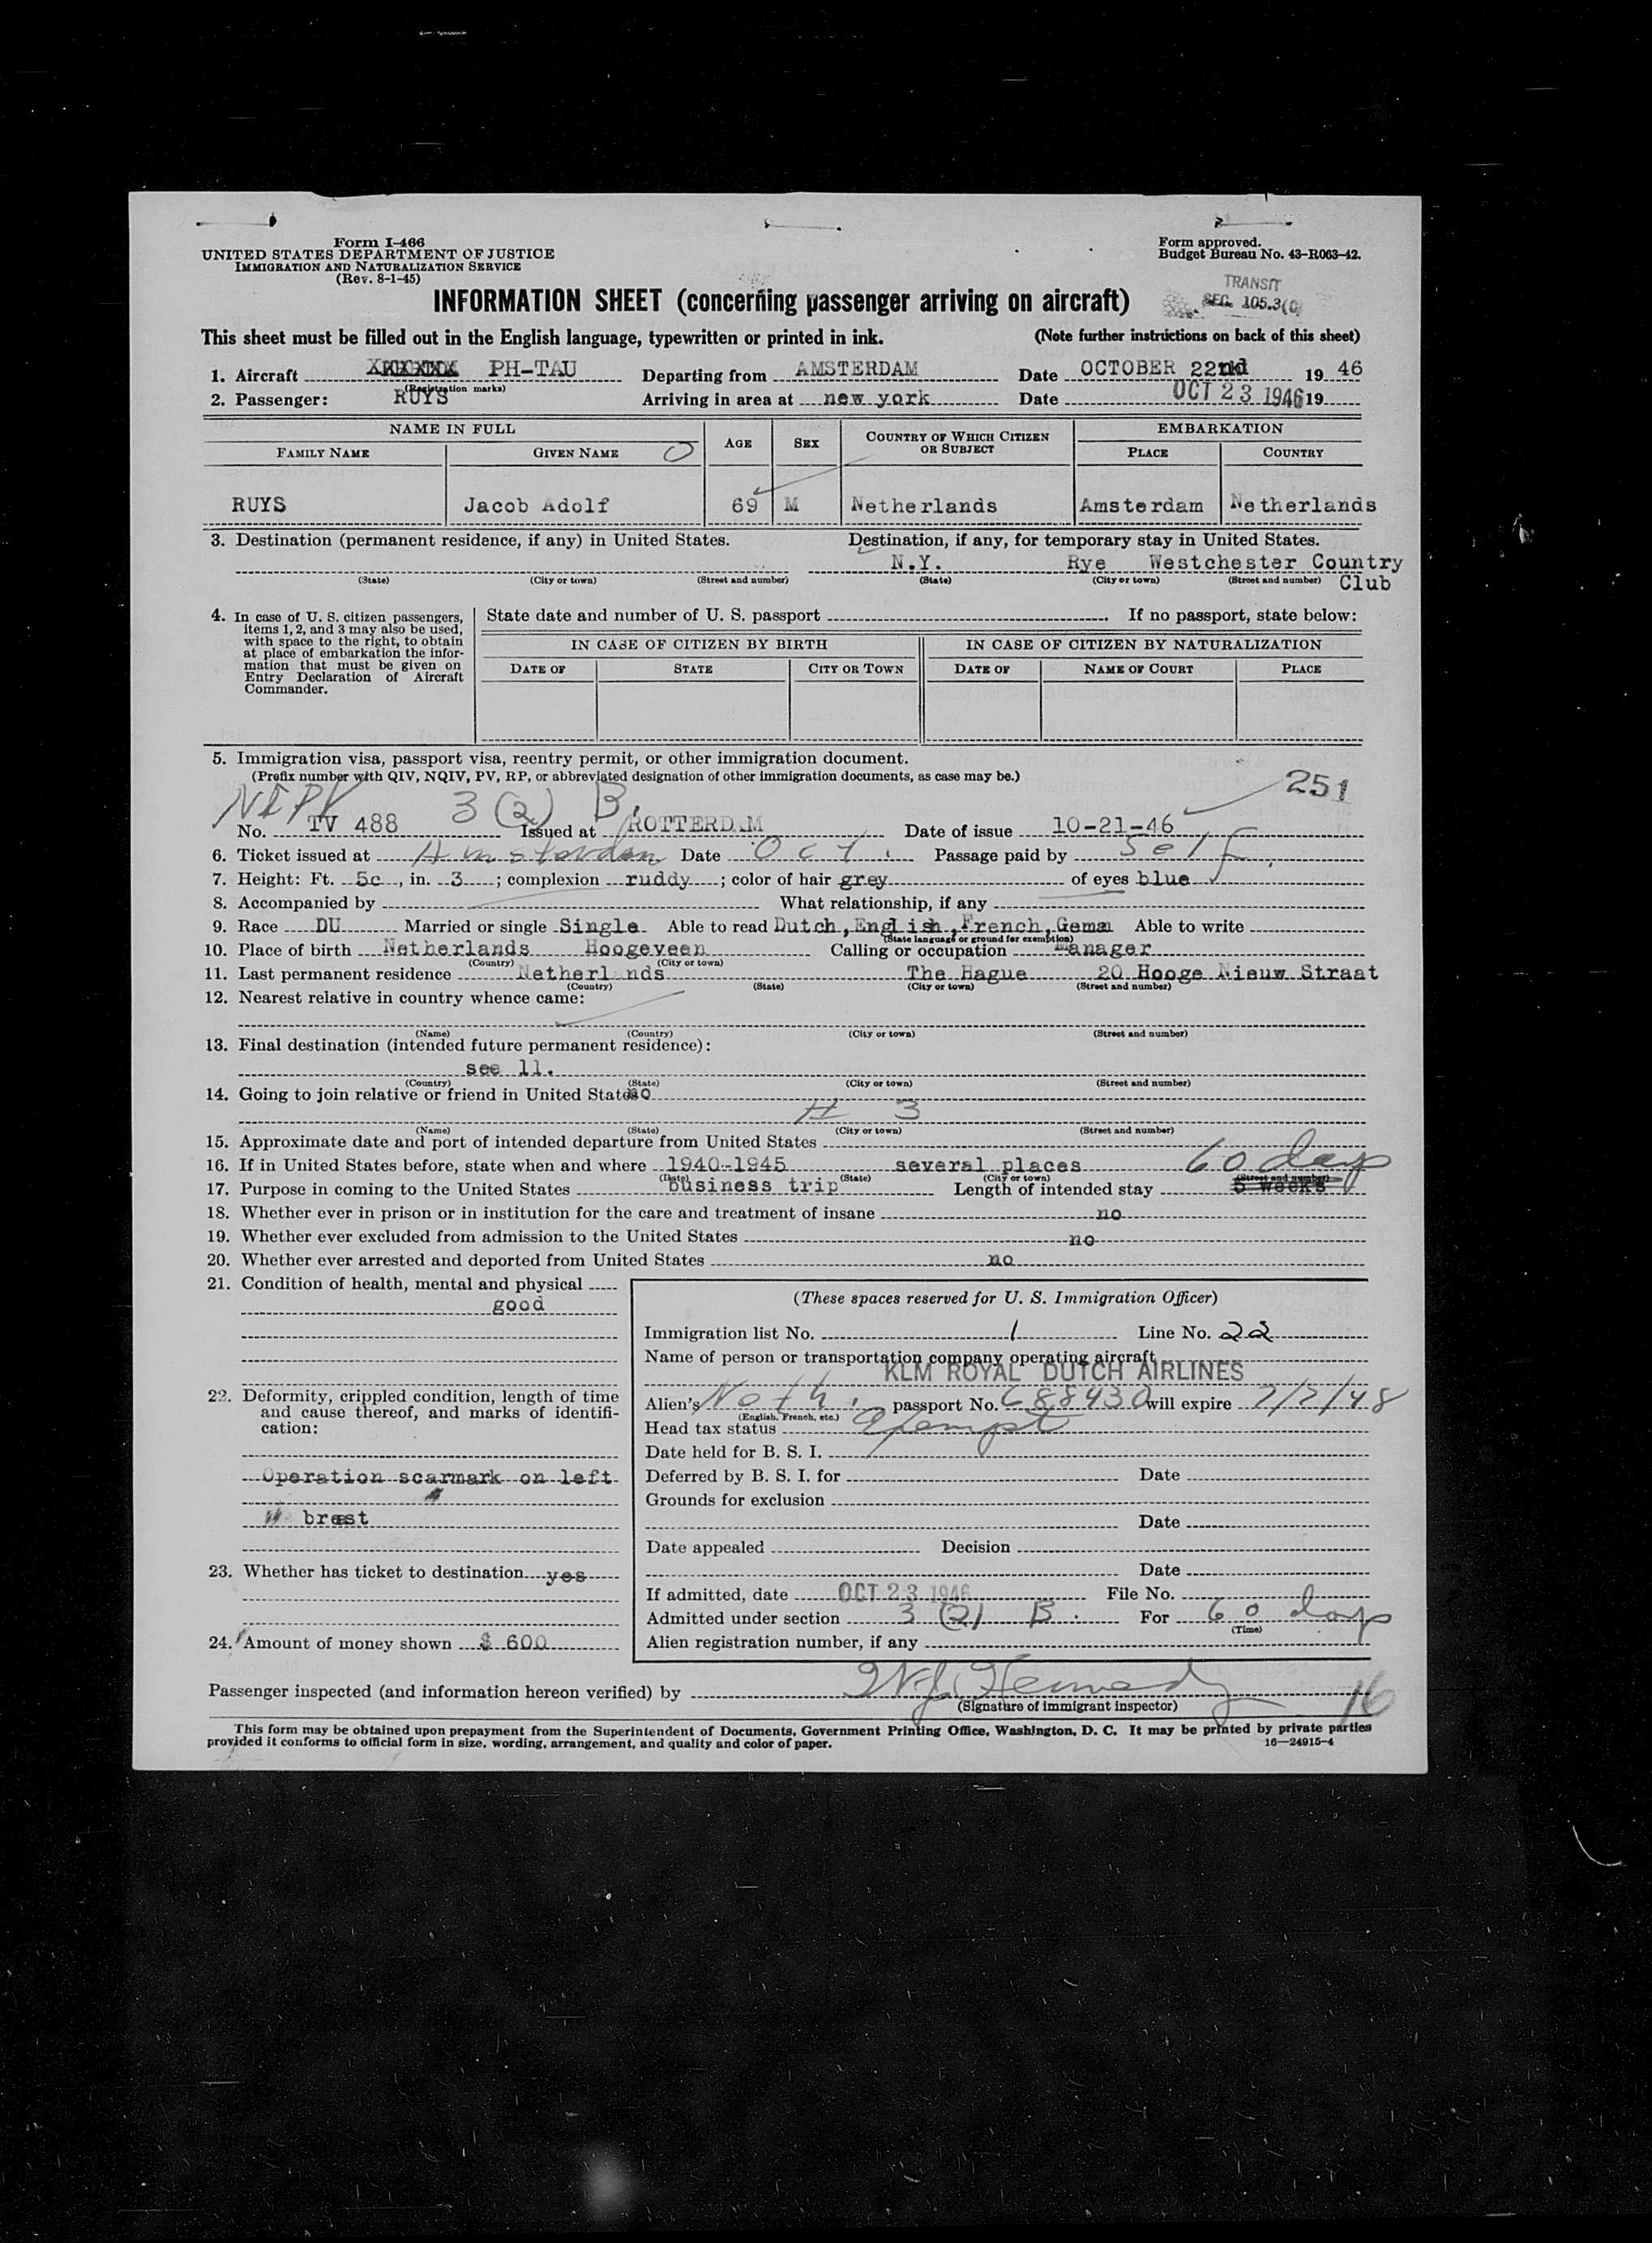 Form I-466
UNITED STATES DEPARTMENT OF JUSTICE
IMMIGRATION AND NATURALIZATION SERVICE
(Rev. 8-1-45)
Form approved.
Budget Bureau No. 43-R063-42.
TRANSIT
SEC. 105.3(C)
INFORMATION SHEET (concerning passenger arriving on aircraft)
This sheet must be filled out in the English language, typewritten or printed in ink. (Note further instructions on back of this sheet)
1. Aircraft PH-TAU Departing from AMSTERDAM Date OCTOBER 22nd 19 46
(Registration marks)
2. Passenger: RUYS Arriving in area at new york Date OCT 23 1946 19
NAME IN FULL AGE SEX COUNTRY OF WHICH CITIZEN OR SUBJECT EMBARKATION
FAMILY NAME GIVEN NAME PLACE COUNTRY
RUYS Jacob Adolf 69 M Netherlands Amsterdam Netherlands
3. Destination (permanent residence, if any) in United States. Destination, if any, for temporary stay in United States.
N.Y. Rye Westchester Country Club
(State) (City or town) (Street and number) (State) (City or town) (Street and number)
4. In case of U. S. citizen passengers, items 1, 2, and 3 may also be used, with space to the right, to obtain at place of embarkation the information that must be given on Entry Declaration of Aircraft Commander.
State date and number of U. S. passport If no passport, state below:
IN CASE OF CITIZEN BY BIRTH IN CASE OF CITIZEN BY NATURALIZATION
DATE OF STATE CITY OR TOWN DATE OF NAME OF COURT PLACE
5. Immigration visa, passport visa, reentry permit, or other immigration document.
(Prefix number with QIV, NQIV, PV, RP, or abbreviated designation of other immigration documents, as case may be.)
251
3 (2) B.
No. TV 488 Issued at ROTTERDAM Date of issue 10-21-46
6. Ticket issued at Amsterdam Date Oct. Passage paid by Self.
7. Height: Ft. 5c, in. 3; complexion ruddy; color of hair grey of eyes blue
8. Accompanied by What relationship, if any
9. Race DU Married or single Single Able to read Dutch, English, French, Geman Able to write
(State language or ground for exemption)
10. Place of birth Netherlands Hoogeveen Calling or occupation Manager
(Country) (City or town)
11. Last permanent residence Netherlands The Hague 20 Hooge Nieuw Straat
(Country) (State) (City or town) (Street and number)
12. Nearest relative in country whence came:
(Name) (Country) (City or town) (Street and number)
13. Final destination (intended future permanent residence):
see 11.
(Country) (State) (City or town) (Street and number)
14. Going to join relative or friend in United States no
# 3
(Name) (State) (City or town) (Street and number)
15. Approximate date and port of intended departure from United States
16. If in United States before, state when and where 1940-1945 several places 60 days
(Date) (State) (City or town) (Street and number)
17. Purpose in coming to the United States business trip Length of intended stay 5 weeks
18. Whether ever in prison or in institution for the care and treatment of insane no
19. Whether ever excluded from admission to the United States no
20. Whether ever arrested and deported from United States no
21. Condition of health, mental and physical
good
22. Deformity, crippled condition, length of time and cause thereof, and marks of identification:
Operation scarmark on left
brest
23. Whether has ticket to destination yes
24. Amount of money shown $ 600
(These spaces reserved for U. S. Immigration Officer)
Immigration list No. 1 Line No. 22
Name of person or transportation company operating aircraft
KLM ROYAL DUTCH AIRLINES
Alien's Neth. passport No. 688430 will expire 7/7/48
(English, French, etc.)
Head tax status Exempt
Date held for B. S. I.
Deferred by B. S. I. for Date
Grounds for exclusion
Date
Date appealed Decision
Date
If admitted, date OCT 23 1946 File No.
Admitted under section 3 (2) B. For 60 days
(Time)
Alien registration number, if any
Passenger inspected (and information hereon verified) by W J Kennedy
(Signature of immigrant inspector)
16
This form may be obtained upon prepayment from the Superintendent of Documents, Government Printing Office, Washington, D. C. It may be printed by private parties
provided it conforms to official form in size, wording, arrangement, and quality and color of paper.
16—24915-4